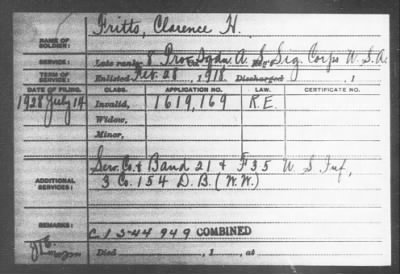 NAME OF SOLDIER: Fritts, Clarence H.
SERVICE: Late rank, 8 Prov Sqdn A. S. Sig. Corps U.S.A.
TERM OF SERVICE: Enlisted Feb. 28, 1918. Discharged , 1
DATE OF FILING. CLASS. APPLICATION NO. LAW. CERTIFICATE NO.
1928 July 14 Invalid, 1619,169 R.E.
Widow,
Minor,
ADDITIONAL SERVICES: Serv. Co. & Band 21 & F 35 U. S. Inf,
3 Co. 154 D. B. (W.W.)
REMARKS: C. 1 544 949 COMBINED
Died , 1 , at